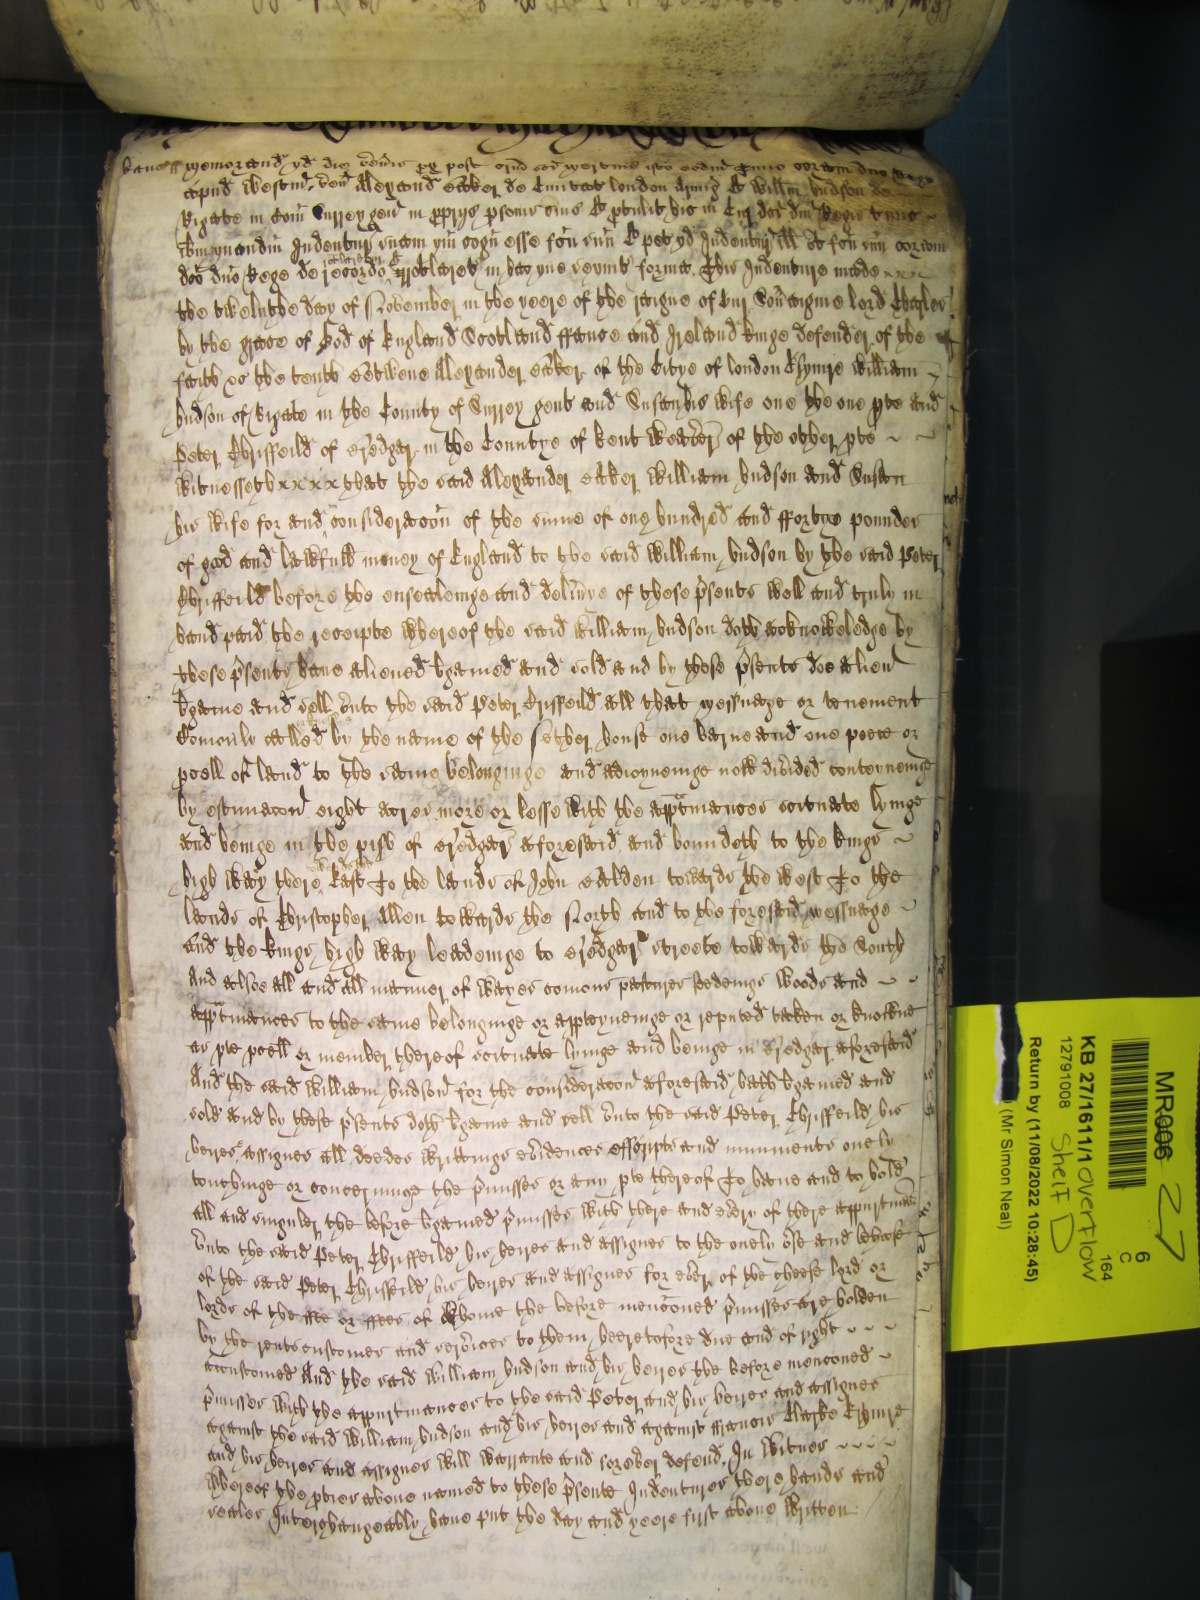 Memorand qd die post
apud Westm ven Alexand Baker de Civitat London Armig Et Willm Hudson de
Rigate in Com Surrey gen in pprijs psonis suis Et ptulit hic in Cur dci dni Regis tunc
ibm quandm Indentur quam cogn esse fcm suu Et pet qd Indentur ill coram
dco dno Rege de recordo irrotularet in hac que sequit forma This Indenture made xxx
the twelveth day of November in the yeere of the raigne of our Soveraigne lord Charles
by the grace of God of England Scotland ffrance and Ireland kinge defender of the
faith &c the tenth Betweene Alexander Baker of the Citye of london Esquire William
Hudson of Rigate in the County of Surrey gent and Susan his wife one the one pte and
Peter Chrisfeild of Bredgar in the Countye of Kent of the other pte
Witnesseth xxxx that the said Alexander Baker William Hudson and Susan
his wife for and consideracon of the sume of one hundred and ffortye poundes
of good and lawfull money of England to the said William Hudson by the said Peter
Chrisfeild before the ensealeinge and delivye of these psents well and truly in
hand paid the receipte whereof the said William Hudson doth acknowledge by
these psents have aliened bgained and sold and by these psents doe alien
bgaine and sell unto the said Peter Crisfeild all that messuage or tenement
Comonly called by the name of the house one barne and one peece or
pcell of land to the same belonginge and adioyneinge now divided conteyneinge
by estimacon eight acres more or lesse with the apptnances scituate lyinge
and beinge in the pish of Bredgar aforesaid and boundeth to the kings
high way there East To the lands of John towards the west To the
lands of Christopher Allen towards the North and to the foresaid messuage
and the kings high way leadeinge to Bredgar streete towards the South
And alsoe all and all manner of wayes comons pastures feedeings woods and
apptnances to the same belonginge or apptayneinge or reputed taken or knowne
as pte pcell or member thereof scituate lyinge and beinge in Bredgar aforesaid
And the said William Hudson for the consideracon aforesaid hath bgained and
sold and by these psents doth bgaine and sell unto the said Peter Chrisfeild his
heires assignes all deedes writtings evidences escripts and muniments onely
touchinge or concerninge the pmisses or any pte thereof To have and to hold
all and singuler the before bgained pmisses with there and evry of there appurtnances
unto the said Peter Chrisfeild his heires and assignes to the onely use and behoofe
of the said Peter Chrisfeild his heires and assignes for evr of the cheefe lord or
lords of the ffee or ffees of whome the before mencioned pmisses are holden
by the rents customes and services to them heeretofore due and of right
accustomed And the said William Hudson and his heires the before mencioned
pmisses with the appurtnances to the said Peter and his heires and assignes
against the said William Hudson and his heires and against ffrancis Clarke Esquire
and his heires and assignes will warrante and forever defend. In Witnes
whereof the pties above named to these psente Indentures there hands and
seales Interchangeably have put the day and yeere first above written
MR006
27
KB 27/1611/1 overflow
12791008
Shelf D
164
6
C
Return by (11/08/2022 10:28:45)
(Mr Simon Neal)